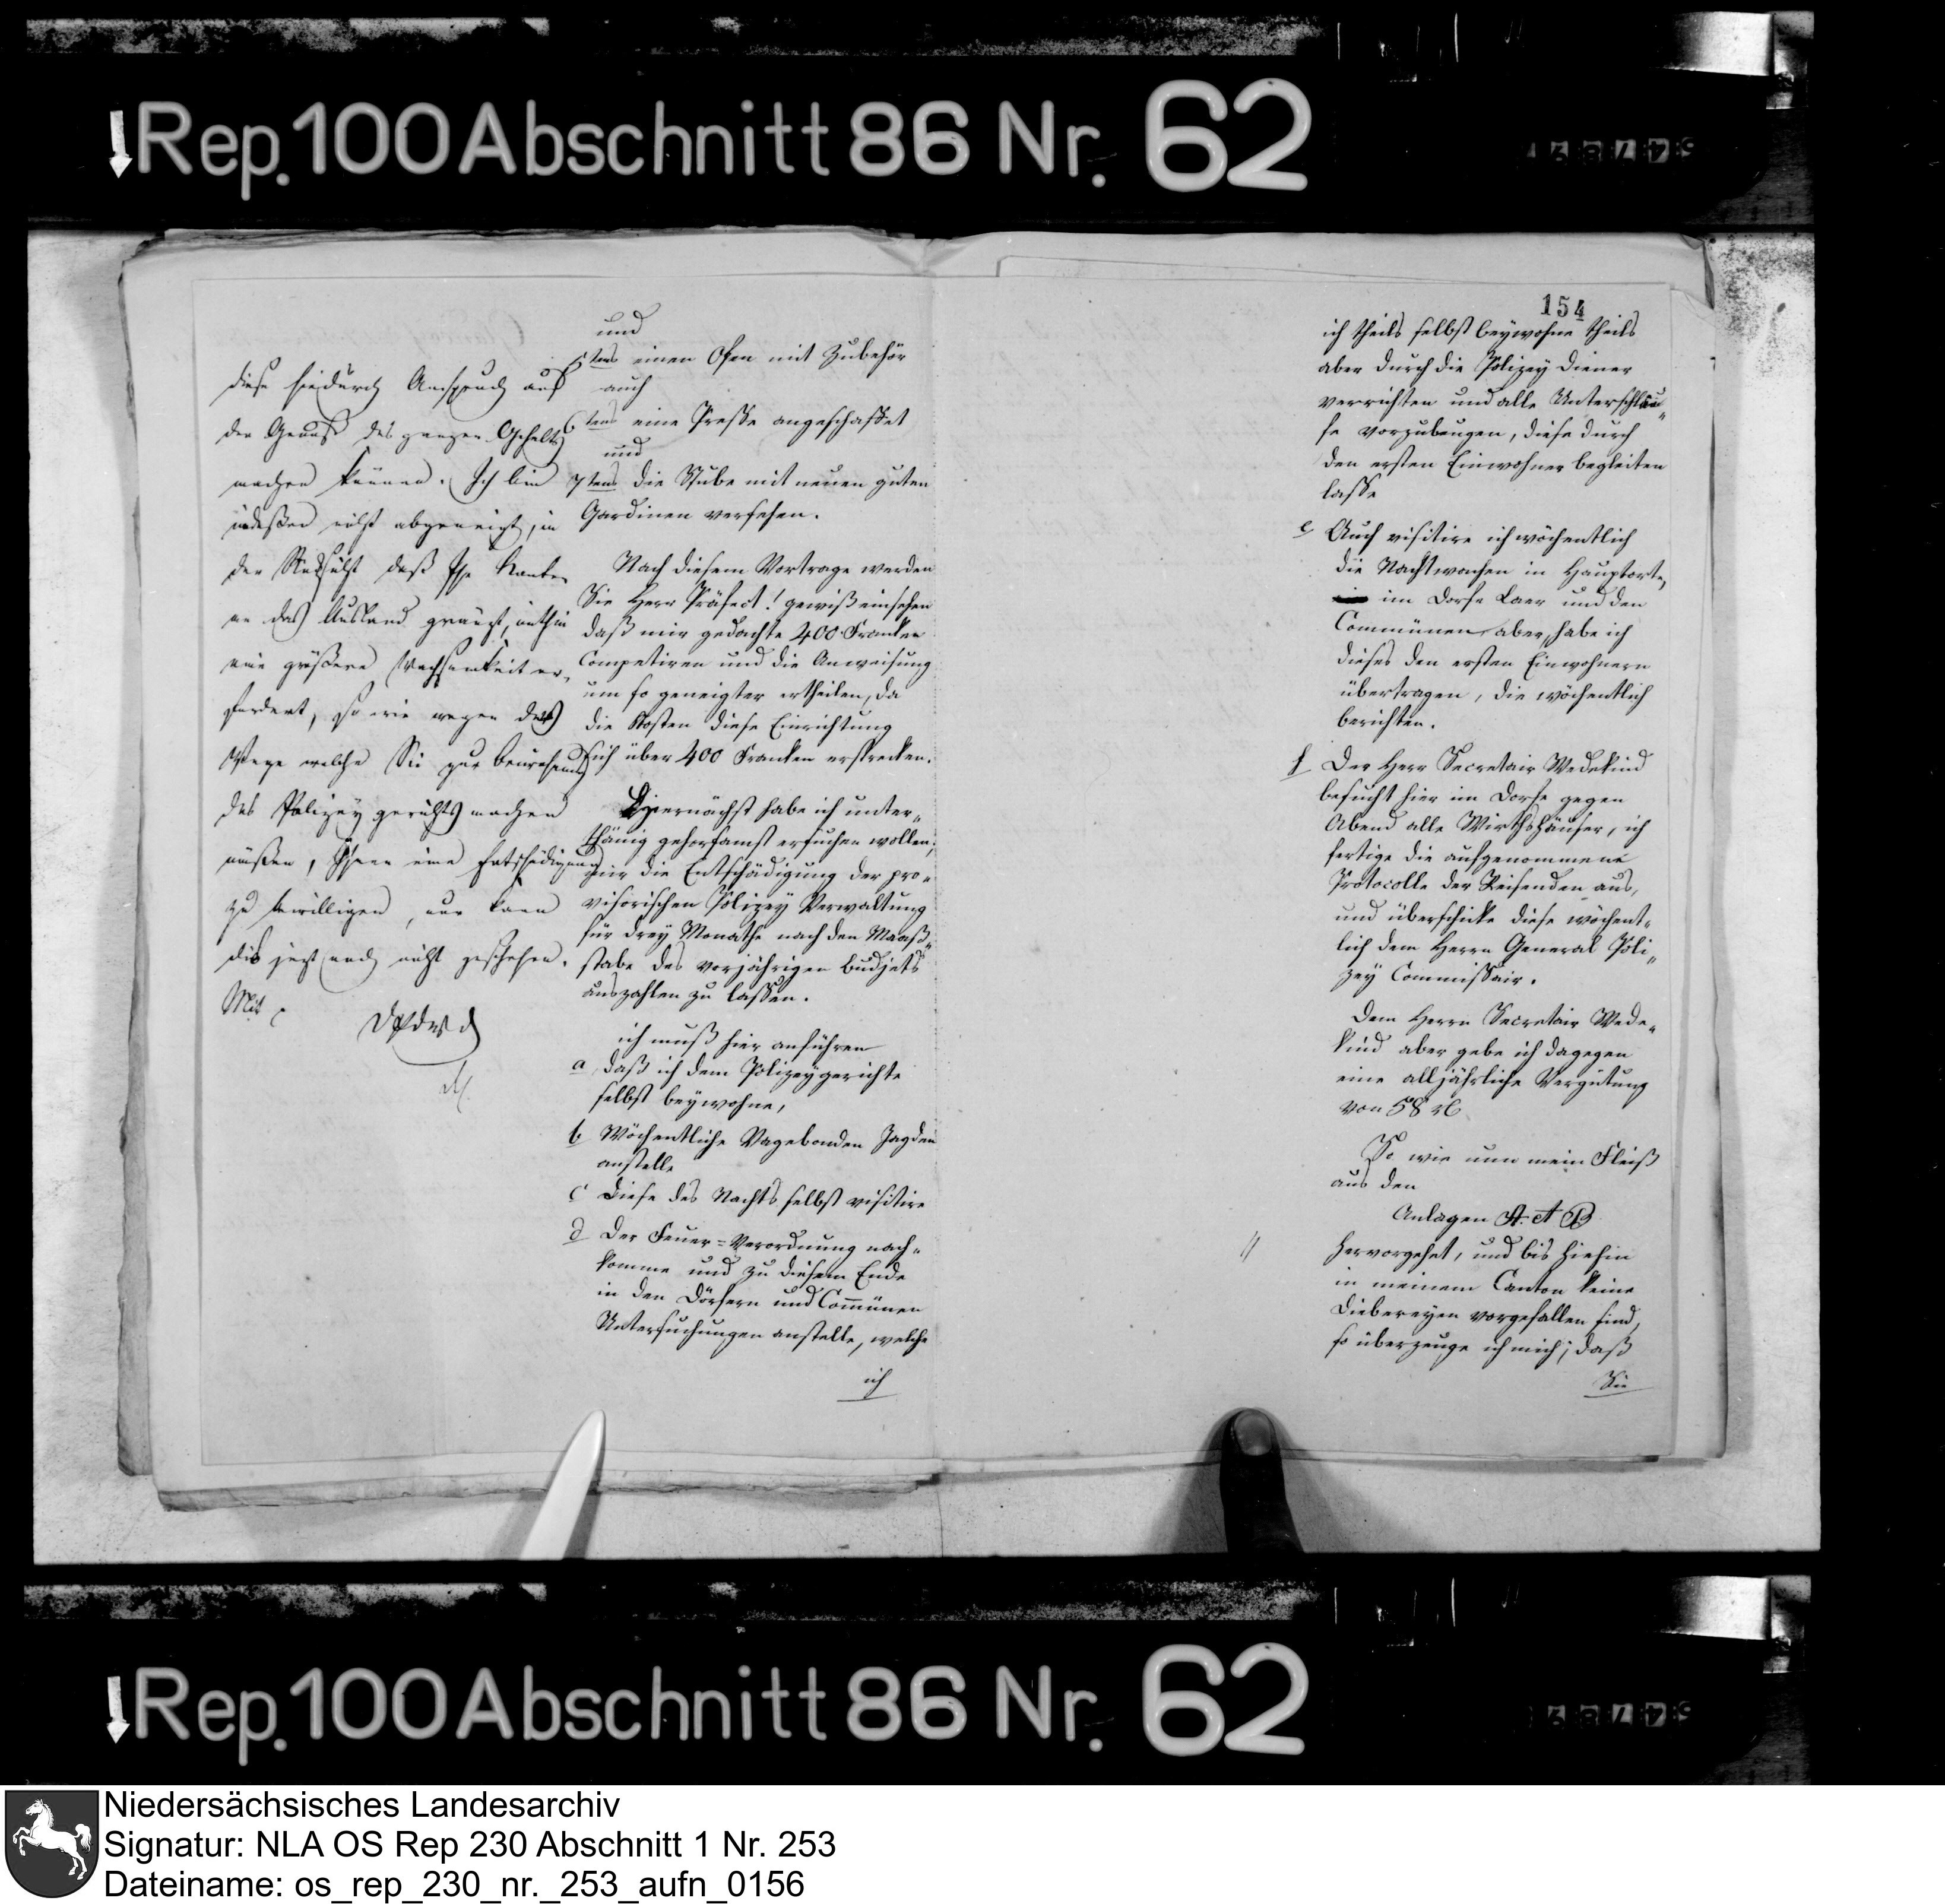 ↓Rep.100 Abschnitt 86 Nr. 62
diese hiedurch Anspruch auf
den Genuß des ganzen Gehalts
machen können. Ich bin
indeßen nicht abgeneigt, in
der Rücksicht daß Ihr Kanton
an das Ausland gränzt, mithin
eine größere Wachsamkeit er-
fordert, so wie wegen der
Wege welche Sie zur
des Polizeygerichts machen
müßen, Ihnen eine Entschädigung
zu bewilligen, nur kann
dies jezt noch nicht geschehen.
Mit
und
5tens einen Ofen mit Zubehör
auch
6tens eine Presse angeschaffet
und
7tens die Stube mit neuen guten
Gardinen versehen.
Nach diesem Vortrage werden
Sie Herr Präfect! gewiß einsehen
daß mir gedachte 400 Franken
competiren und die Anweisung
um so geneigter ertheilen, da
die Kosten diese Einrichtung
sich über 400 Franken erstrecken.
Hiernächst habe ich unter-
thänig gehorsamst ersuchen wollen,
mir die Entschädigung der pro-
visorischen Polizey Verwaltung
für drey Monathe nach den Maaß-
stabe des vorjährigen Budjets
auszahlen zu lassen.
ich muß hier anführen
a daß ich dem Polizeygerichte
selbst beywohne,
b Wöchentliche Vagebonden Jagden
anstelle
c Diese des Nachts selbst visitire
d Der Feuer-Verordnung nach-
komme und zu diesem Ende
in den Dörfern und Commünen
Untersuchungen anstelle, welche
ich
154
ich theils selbst beywohne theils
aber durch die Polizey Diener
verrichten und alle Unterschläu-
fe vorzubeugen, diese durch
den ersten Einwohner begleiten
lasse
e Auch visitire ich wöchentlich
die Nachtwachen in Hauptorte,
im Dorfe Laer und den
Commünen aber, habe ich
dieses den ersten Einwohnern
übertragen, die wöchentlich
berichten.
f Der Herr Secretair Wedekind
besucht hier im Dorfe gegen
Abend alle Wirthshäuser, ich
fertige die aufgenommene
Protocolle der Reisenden aus,
und überschicke diese wöchent-
lich dem Herrn General Poli-
zey Commissair.
Dem Herrn Secretair Wede-
kind aber gebe ich dagegen
eine alljährliche Vergütung
von 58
So wie nun mein Fleiß
aus den
Anlagen A. et B
hervorgehet, und bis hiehin
in meinem Canton keine
Diebereyen vorgefallen sind,
so überzeuge ich mich; daß
Sie
↓Rep.100 Abschnitt 86 Nr. 62
Niedersächsisches Landesarchiv
Signatur: NLA OS Rep 230 Abschnitt 1 Nr. 253
Dateiname: os_rep_230_nr._253_aufn_0156